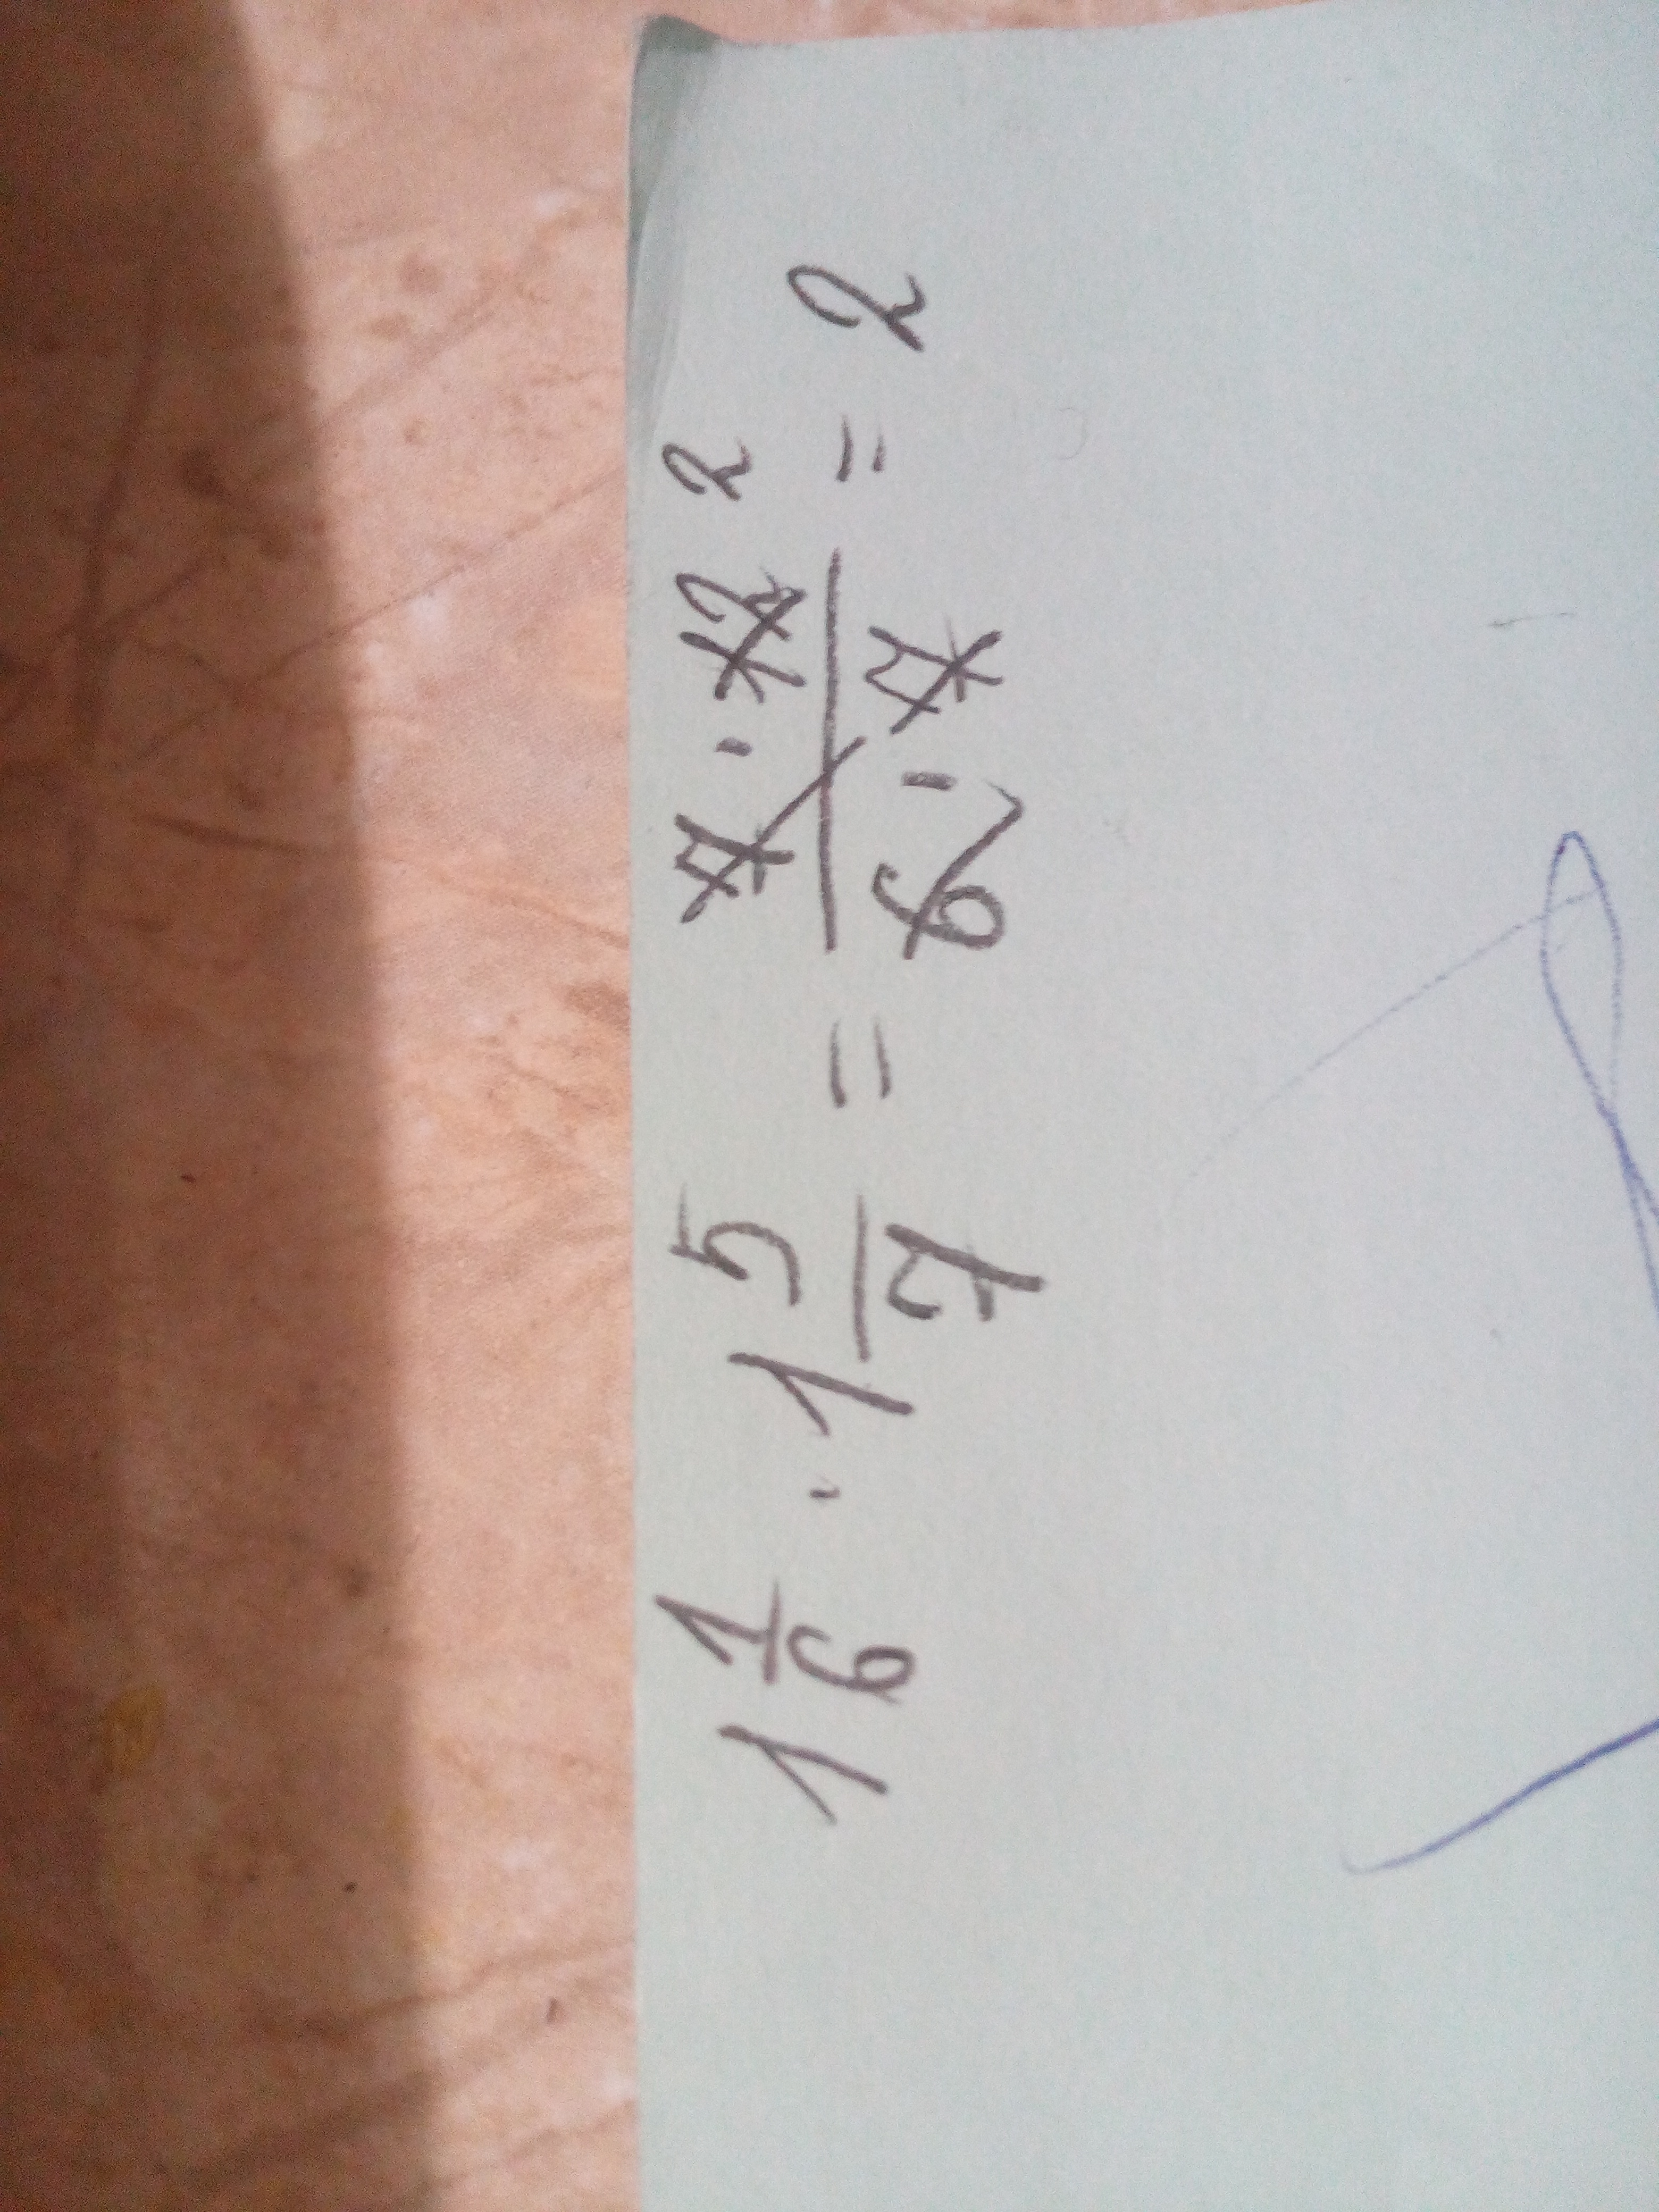 1 1/6 · 1 5/7 = 7 · 12 2 / 6 · 7 = 2